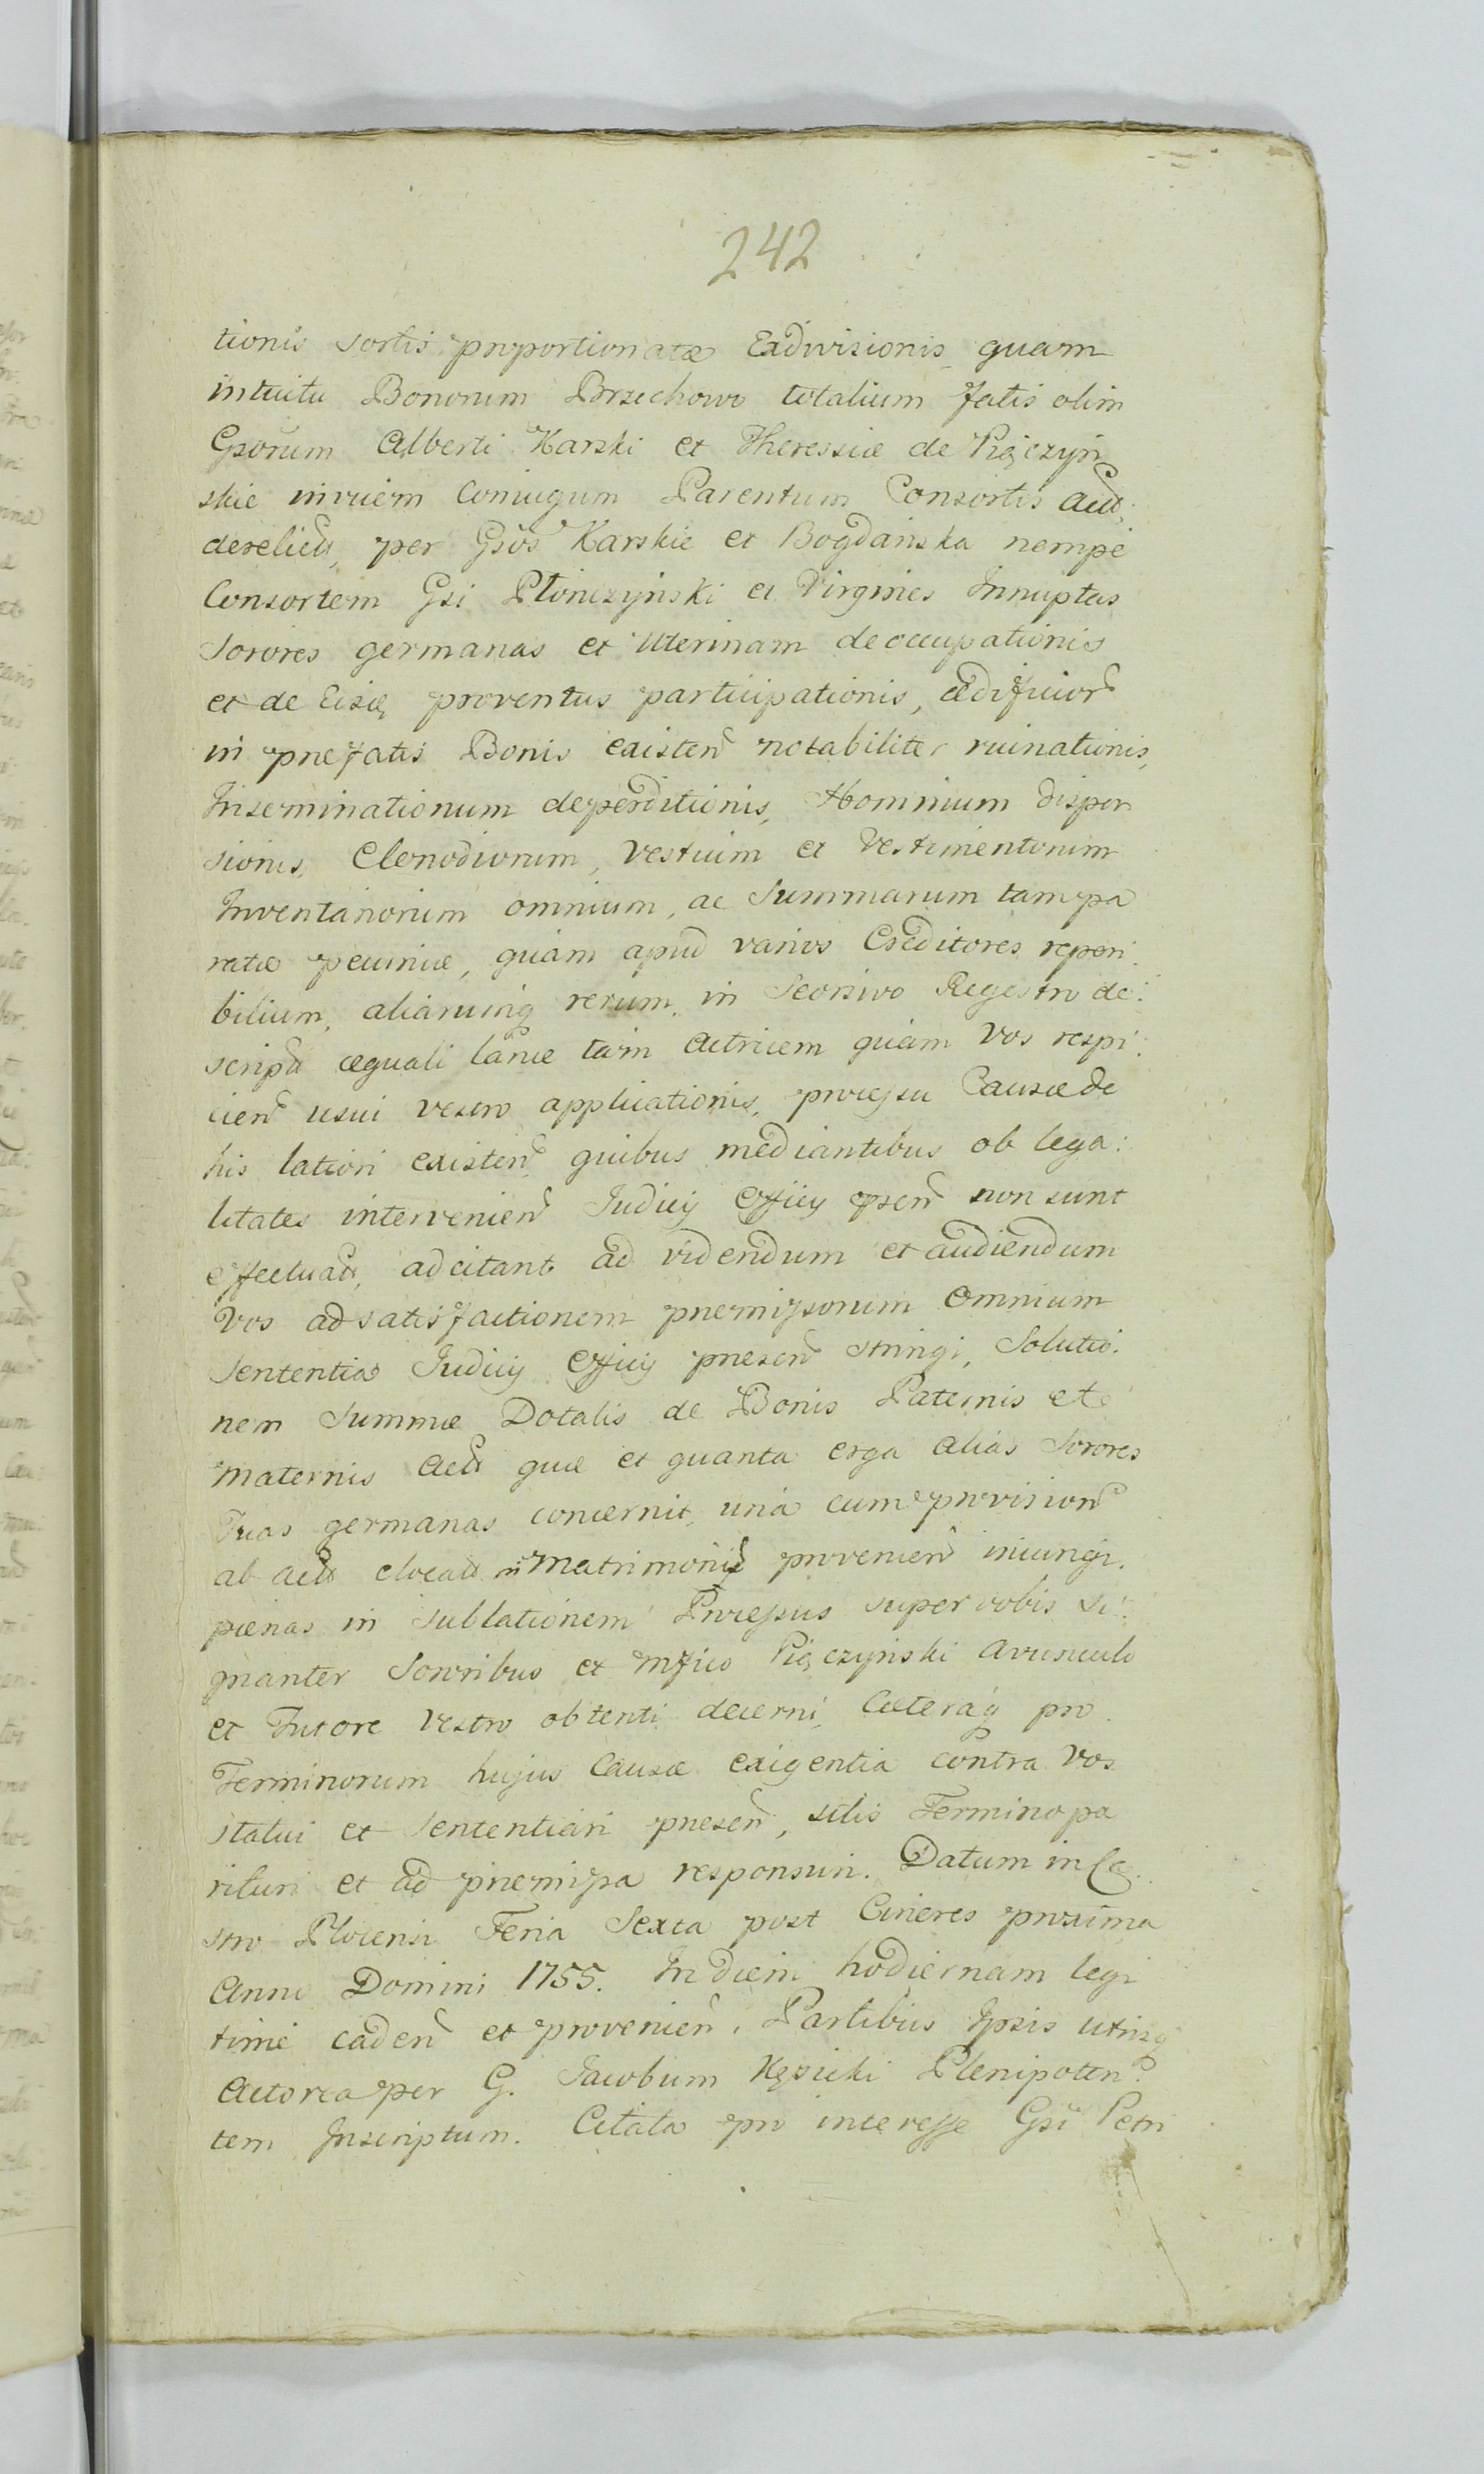 242
tionis sortis proportionatæ Exdivisionis, quam
intuitu Bonorum Brzechowo totalium fatis olim
Gsorum Alberti Karski et Theressiæ de Piączyń
skie invicem Coniugum Parentum Consortis Act.
derelict, per Gsos Karskie et Bogdańska nempe
Consortem Gsi Płonczyński et Virgines Innuptas
Sorores germanas et Uterinam deoccupationis
et de Eisq proventus participationis, ædificior
in præfatis Bonis existen notabiliter ruinationis,
Inseminationum deperditionis, Hominum disper
sionis, Clenodiorum, Vestium et Vestimentorum
Inventariorum omnium, ac Summarum tam pa
ratæ pecuniæ, quam apud varios Creditores reperi:
bilium, aliarumq rerum, in Seorsivo Regestro de:
script æquali lance tam Actricem quam Vos respi:
cien usui vestro applicationis, processu Causæ de
his latiori existen quibus mediantibus ob lega:
litates intervenien Iudicij Officij psen non sunt
effectuat, adcitant ad videndum et audiendum
Vos ad satisfactionem præmissorum Omnium
Sententia Iudicij Officij præsen stringi, Solutio:
nem Summæ Dotalis de Bonis Paternis et
Maternis Act quæ et quanta erga alias Sorores
Suas germanas concernit, una cum provision
ab act elocat in Matrimoniu provenien iniungi.
pænas in sublationem Processus super vobis si:
gnanter Sororibus et Mfico Piączyński Avunculo
et Tutore Vestro obtenti decerni, Cæteraq pro
Terminorum hujus Causæ exigentia contra Vos
statui et Sententiari præsen, sitis Termino pa
rituri et ad præmissa responsuri. Datum in Ca
stro Plocensi Feria Sexta post Cineres proxima
Anno Domini 1755. In diem hodiernam legi
time caden et provenien, Partibus Ipsis utrisq
Actorea per G. Jacobum Kęsicki Plenipoten
tem Inscriptum. Citata pro interesse Gsi Petri